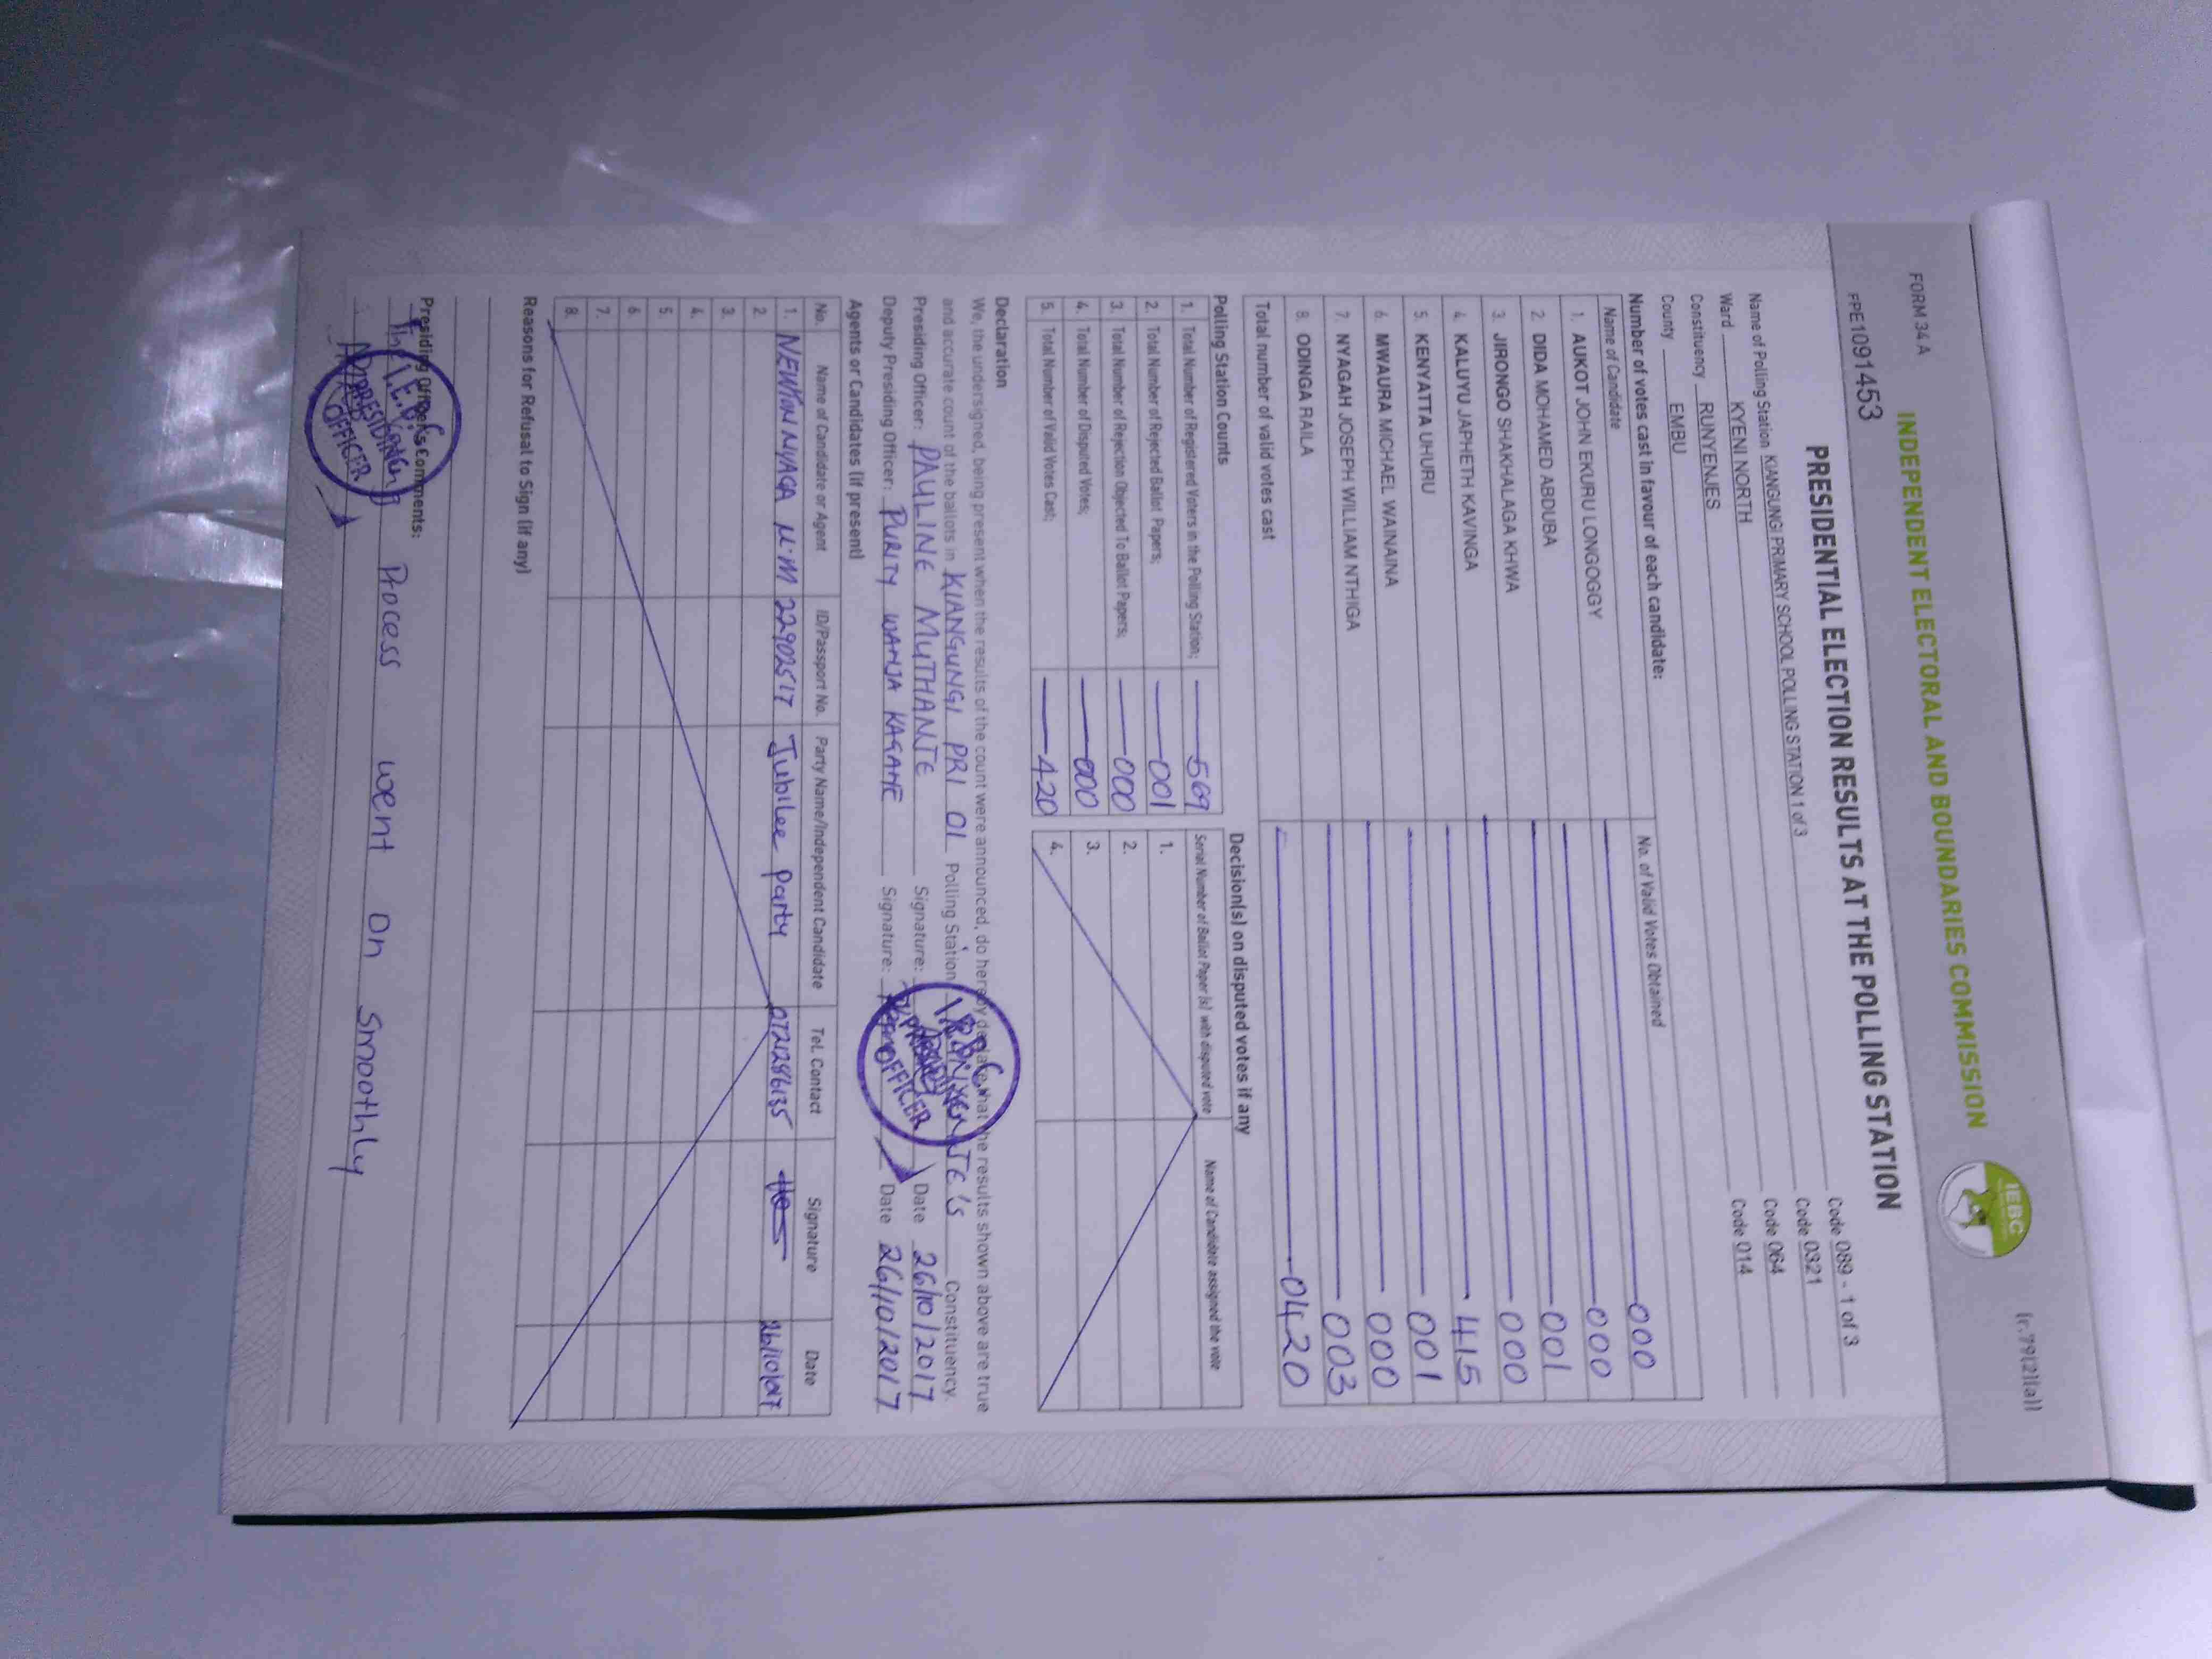 FORM 34 A
(r.79(2)(a))
INDEPENDENT ELECTORAL AND BOUNDARIES COMMISSION
IEBC
PPE1091453
PRESIDENTIAL ELECTION RESULTS AT THE POLLING STATION
Name of Polling Station KIANGUNGI PRIMARY SCHOOL POLLING STATION 1 of 3 Code 089 - 1 of 3
Ward KYENI NORTH Code 0321
Constituency RUNYENJES Code 064
County EMBU Code 014
Number of votes cast in favour of each candidate:
Name of Candidate No. of Valid Votes Obtained
1. AUKOT JOHN EKURU LONGOGGY 000
2. DIDA MOHAMED ABDUBA 000
3. JIRONGO SHAKHALAGA KHWA 001
4. KALUYU JAPHETH KAVINGA 000
5. KENYATTA UHURU 415
6. MWAURA MICHAEL WAINAINA 001
7. NYAGAH JOSEPH WILLIAM NTHIGA 000
8. ODINGA RAILA 003
Total number of valid votes cast 0420
Polling Station Counts
1. Total Number of Registered Voters in the Polling Station; 569
2. Total Number of Rejected Ballot Papers; 001
3. Total Number of Rejection Objected To Ballot Papers; 000
4. Total Number of Disputed Votes; 000
5. Total Number of Valid Votes Cast; 420
Decision(s) on disputed votes if any
Serial Number of Ballot Paper (s) with disputed vote Name of Candidate assigned the vote
1.
2.
3.
4.
Declaration
We, the undersigned, being present when the results of the count were announced, do hereby declare that the results shown above are true
and accurate count of the ballots in KIANGUNGI PRI 01 Polling Station Constituency.
Presiding Officer: PAULINE MUTHANJE Signature: Date 26/10/2017
Deputy Presiding Officer: PURITY WANJA KAGANE Signature: Date 26/10/2017
OFFICER
Agents or Candidates (if present)
No. Name of Candidate or Agent ID/Passport No. Party Name/Independent Candidate Tel. Contact Signature Date
1. NEWTON NYAGA M.M 22902517 Jubilee Party 0721286135 26/10/017
2.
3.
4.
5.
6.
7.
8.
Reasons for Refusal to Sign (if any)
Presiding Officer's Comments:
The Process went on Smoothly
PRESIDING
OFFICER